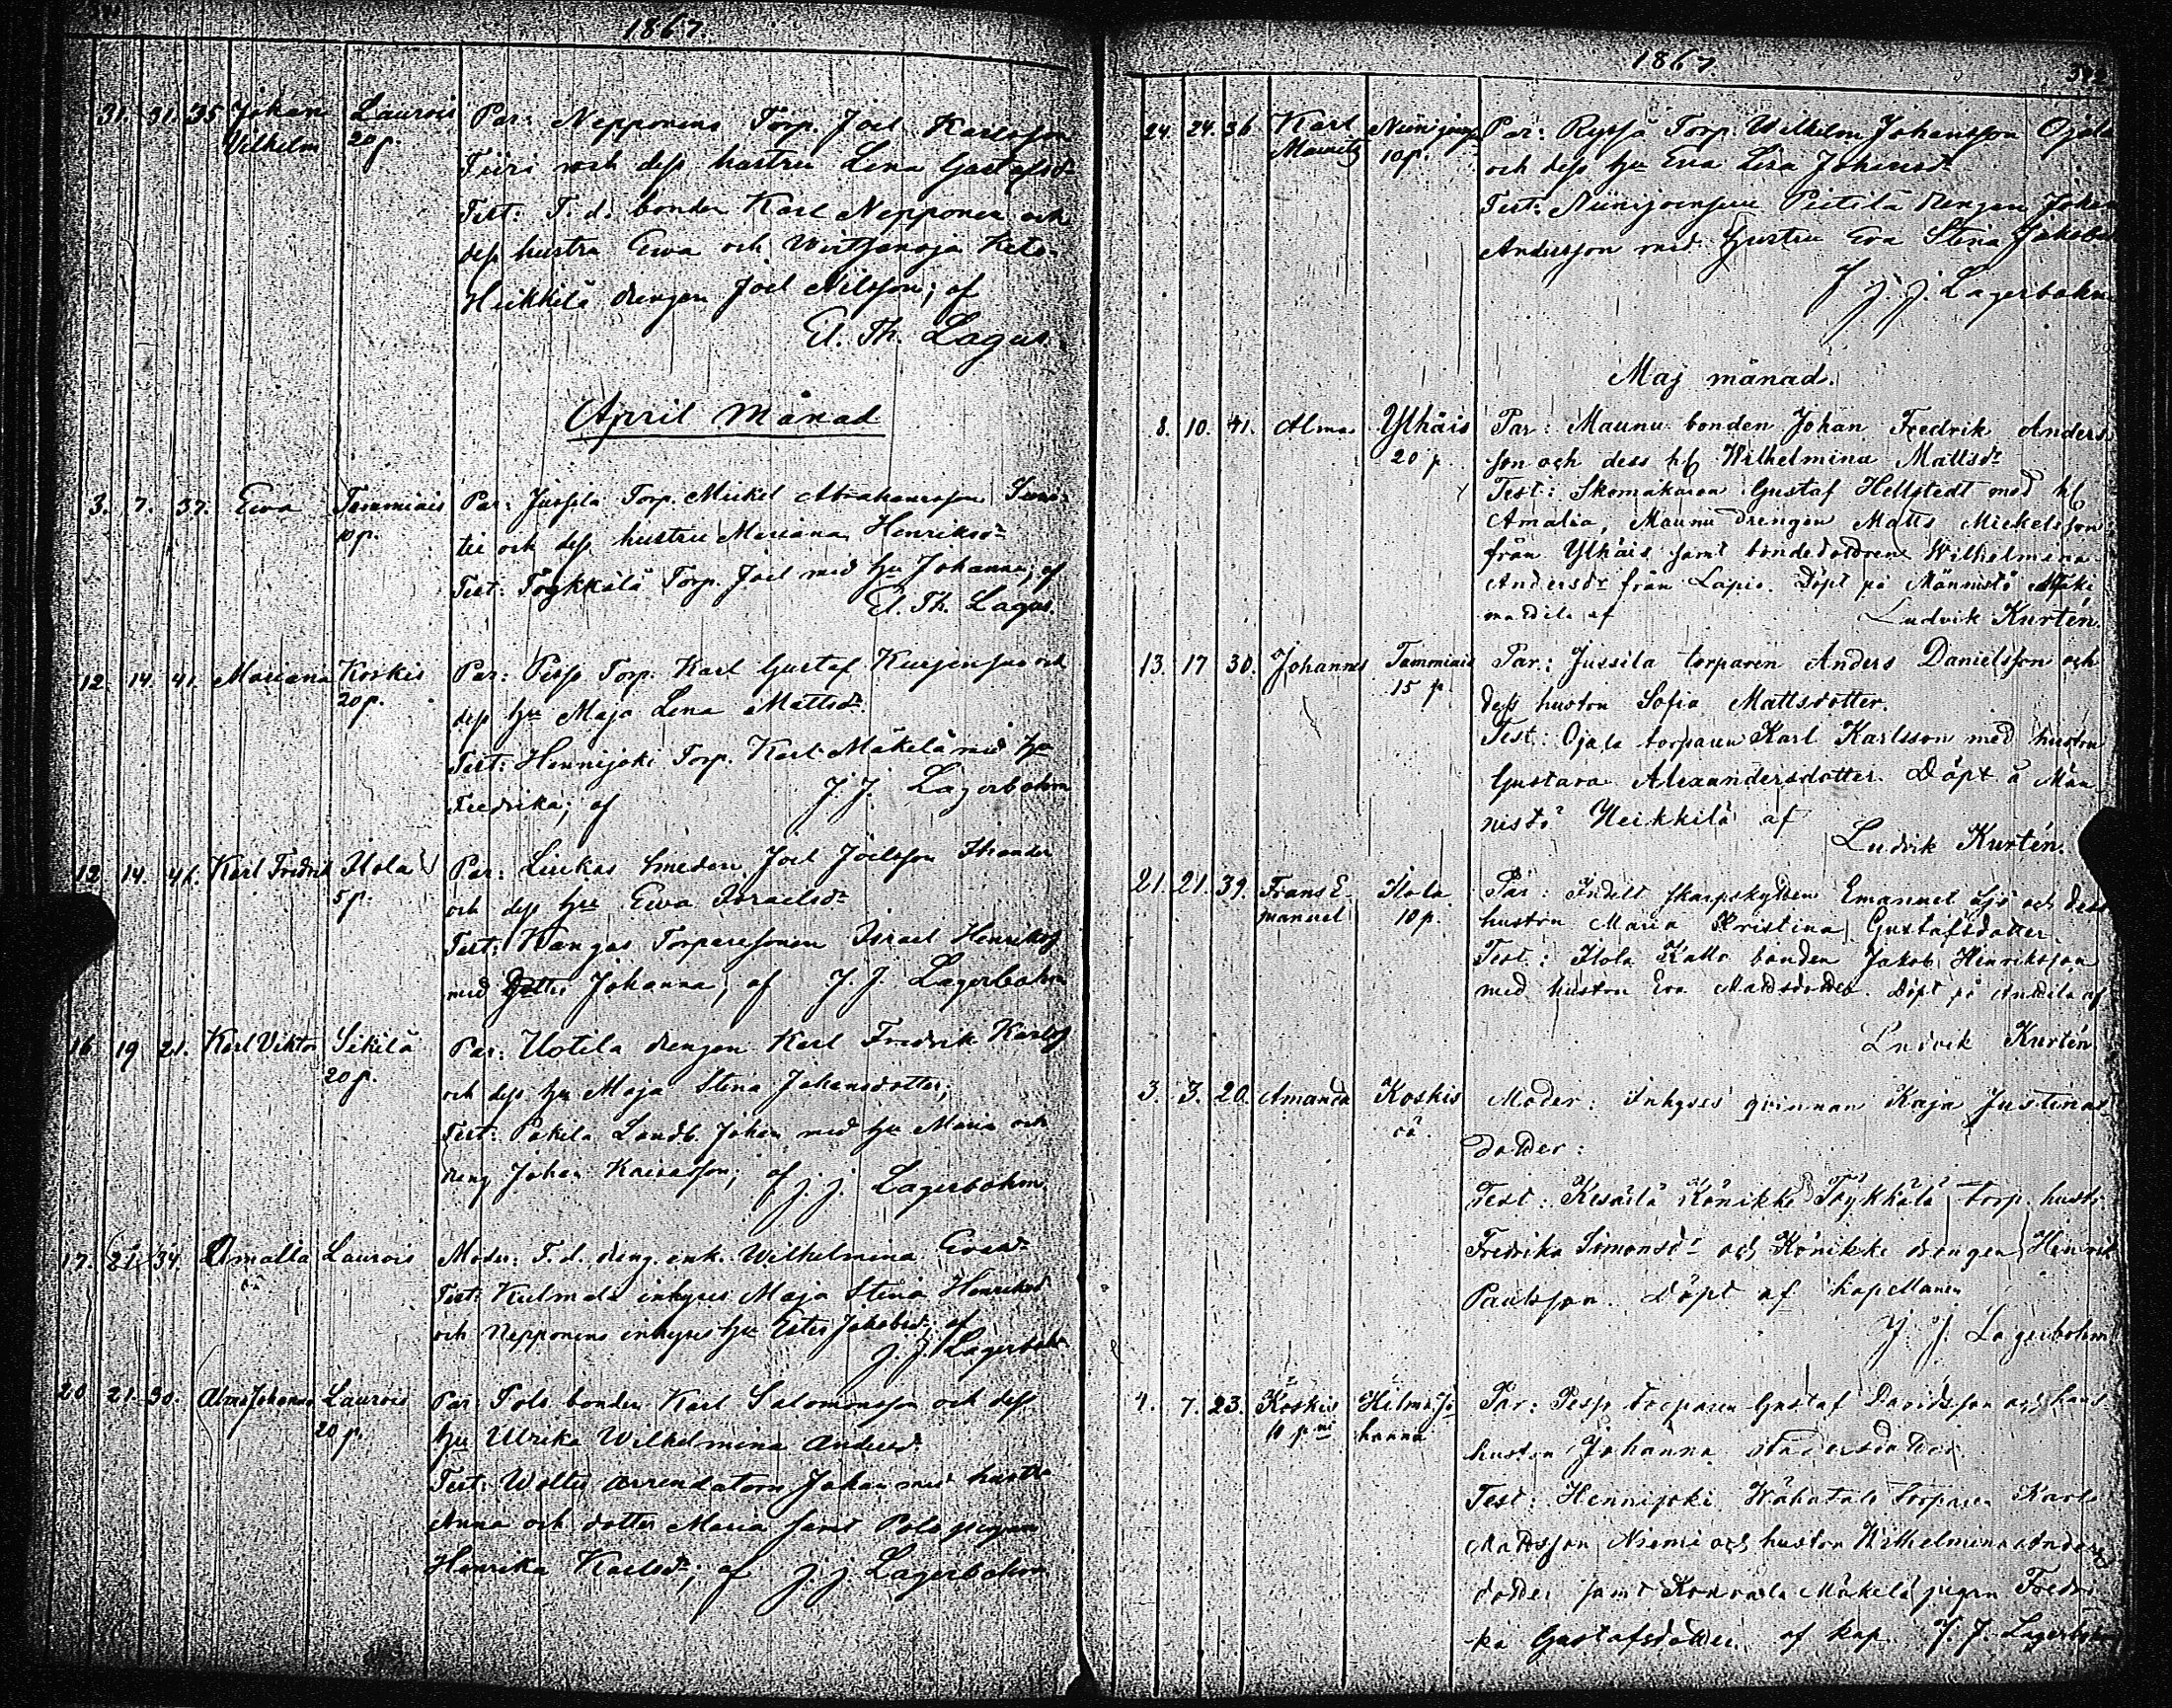 1867.
31. 31. 35 Johan Laurois Par: Nepponens Torp. Joel Karlsson
Vilhelm 20 p. Tiiri och dess hustru Lena Gustafsdr
Test: F. d. bonden Karl Nepponen och
dess hustru Ewa och Wirtsanoja Keto-
Heikkilä drengen Joel Nilsson; af
El. Th. Lagus.
April Månad
3. 7. 37. Ewa Tammiais Par: Jussila Torp. Mickel Abrahamsson
10 p. och dess hustru Mariana Henriksdr
Test: Töykkälä Torp. Joel med hu Johanna; af
El. Th. Lagus.
12 14. 41. Mariana Koskis Par: Pesss Torp. Karl Gustaf Kurjensuu och
20 p. dess hu Maja Lena Mattsdr
Test: Hennijoki Torp. Karl Mäkelä med hu
Fredrika; af J. J. Lagerbohm
12 14. 41. Karl Fredrik Itola Par: Liukas smeden Joel Joelsson
5 p. och dess hu Ewa Israelsdr
Test: Kangas Torparesonen Israel Henrikss
med Johanna, af J. J. Lagerbohm
16 19 21. Karl Viktor Sikilä Par: Uotila drengen Karl Fredrik Karlss
20 p. och dess hu Maja Stina Johansdotter;
Test: Pakila Landb. Johan med hu Maria och
dreng Johan; af J. J. Lagerbohm.
17. 21 34. Amalia Laurois Moder: F. d. dreng. enk. Wilhelmina
oä Test: Kulmala inhyses Maja Stina Henriksd
och Nepponens inhyses hu Ester Jakobsd; af
J. J. Lagerbohm
20 21. 30. Alma Johanna Laurois Par: Polo bonden Karl Salomonsson och dess
20 p. hu Ulrika Wilhelmina Andersd
Test: Woltti arrendatorn Johan med hustru
Anna och dotter Maria samt Polo pigan
Henrika Karlsdr; af J. J. Lagerbohm
1867.
24. 24. 36 Karl Niinijoensuu Par: Ryssä Torp. Wilhelm Johansson Ojala
Mauritz 10 p. och dess hu Eva Lisa Johansdr
Test: Niinijoensuu Peitilä drengen Johan
Andersson med hustru Eva Stina Jakobsd
J. J. Lagerbohm
Maj månad.
8. 10. 41. Alma Ylhäis Par: Maunu bonden Johan Fredrik Anders-
20 p. son och dess h Wilhelmina Mattsdr
Test: Skomakaren Gustaf Hellstedt med h
Amalia, Maunu drengen Matts Mickelsson
från Ylhäis samt bondedottren Wilhelmina
Andersdr från Lapio. Döpt på Männistö
af Ludvik Kurtén.
13. 17 30. Johannes Tammiais Par: Jussila torparen Anders Danielsson och
15 p. dess hustru Sofia Mattsdotter.
Test: Ojala torparen Karl Karlsson med hustru
Gustava Alexandersdotter. Döpt å Män-
nistö Heikkilä af
Ludvik Kurtén.
21. 21. 39. Frans E- Itola Par: Indelt skarpskytten Emanuel Sjö och dess
manuel 10 p. hustru Maria Kristina Gustafsdotter
Test: Itola Kallo bonden Jakob Henriksson
med hustru Eva Mattsdotter. Döpt på Anttila af
Ludvik Kurtén.
3. 3. 20. Amanda Koskis Moder: Inhyses qvinnan Kaja Justinas
oä. dotter:
Test: Kesäilä Könikkä Töykkälä torp. hustr.
Fredrika Simonsdr och Könikke drengen Henrik
Paulsson. Döpt af kapellanen
J. J. Lagerbohm
4. 7. 23. Koskis Hilma Jo- Par: Pesss torparen Gustaf Davidsson och hans
10 p ni hanna hustru Johanna Andersdotter.
Test: Hennijoki Wähätalo torparen Karl
Mattsson Niemi och hustru Wilhelmina Anders
dotter samt Mäkelä pigan Fredri-
ka Gustafsdotter. af kap. J. J. Lagerbohm